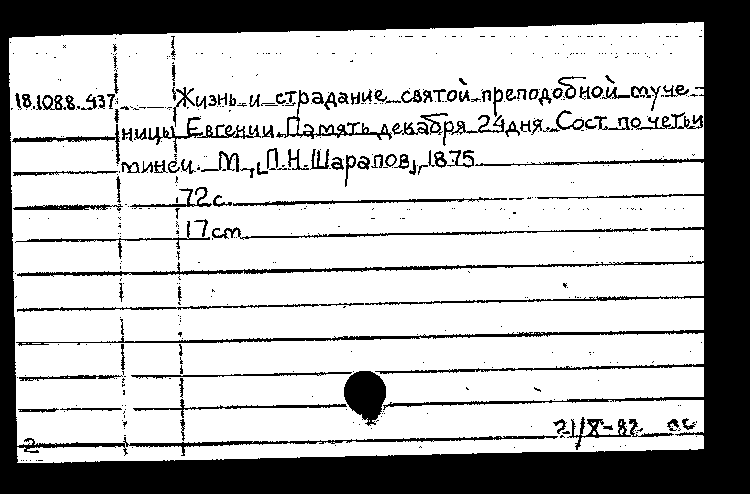 18.108.8.437 Жизнь и страдание святой преподобной муче-
ницы Евгении. Память декабря 24 дня. Сост. по четьи
минеи. М., [П.Н. Шарапов], 1875.
72 с.
17 cm
21/X-82
2